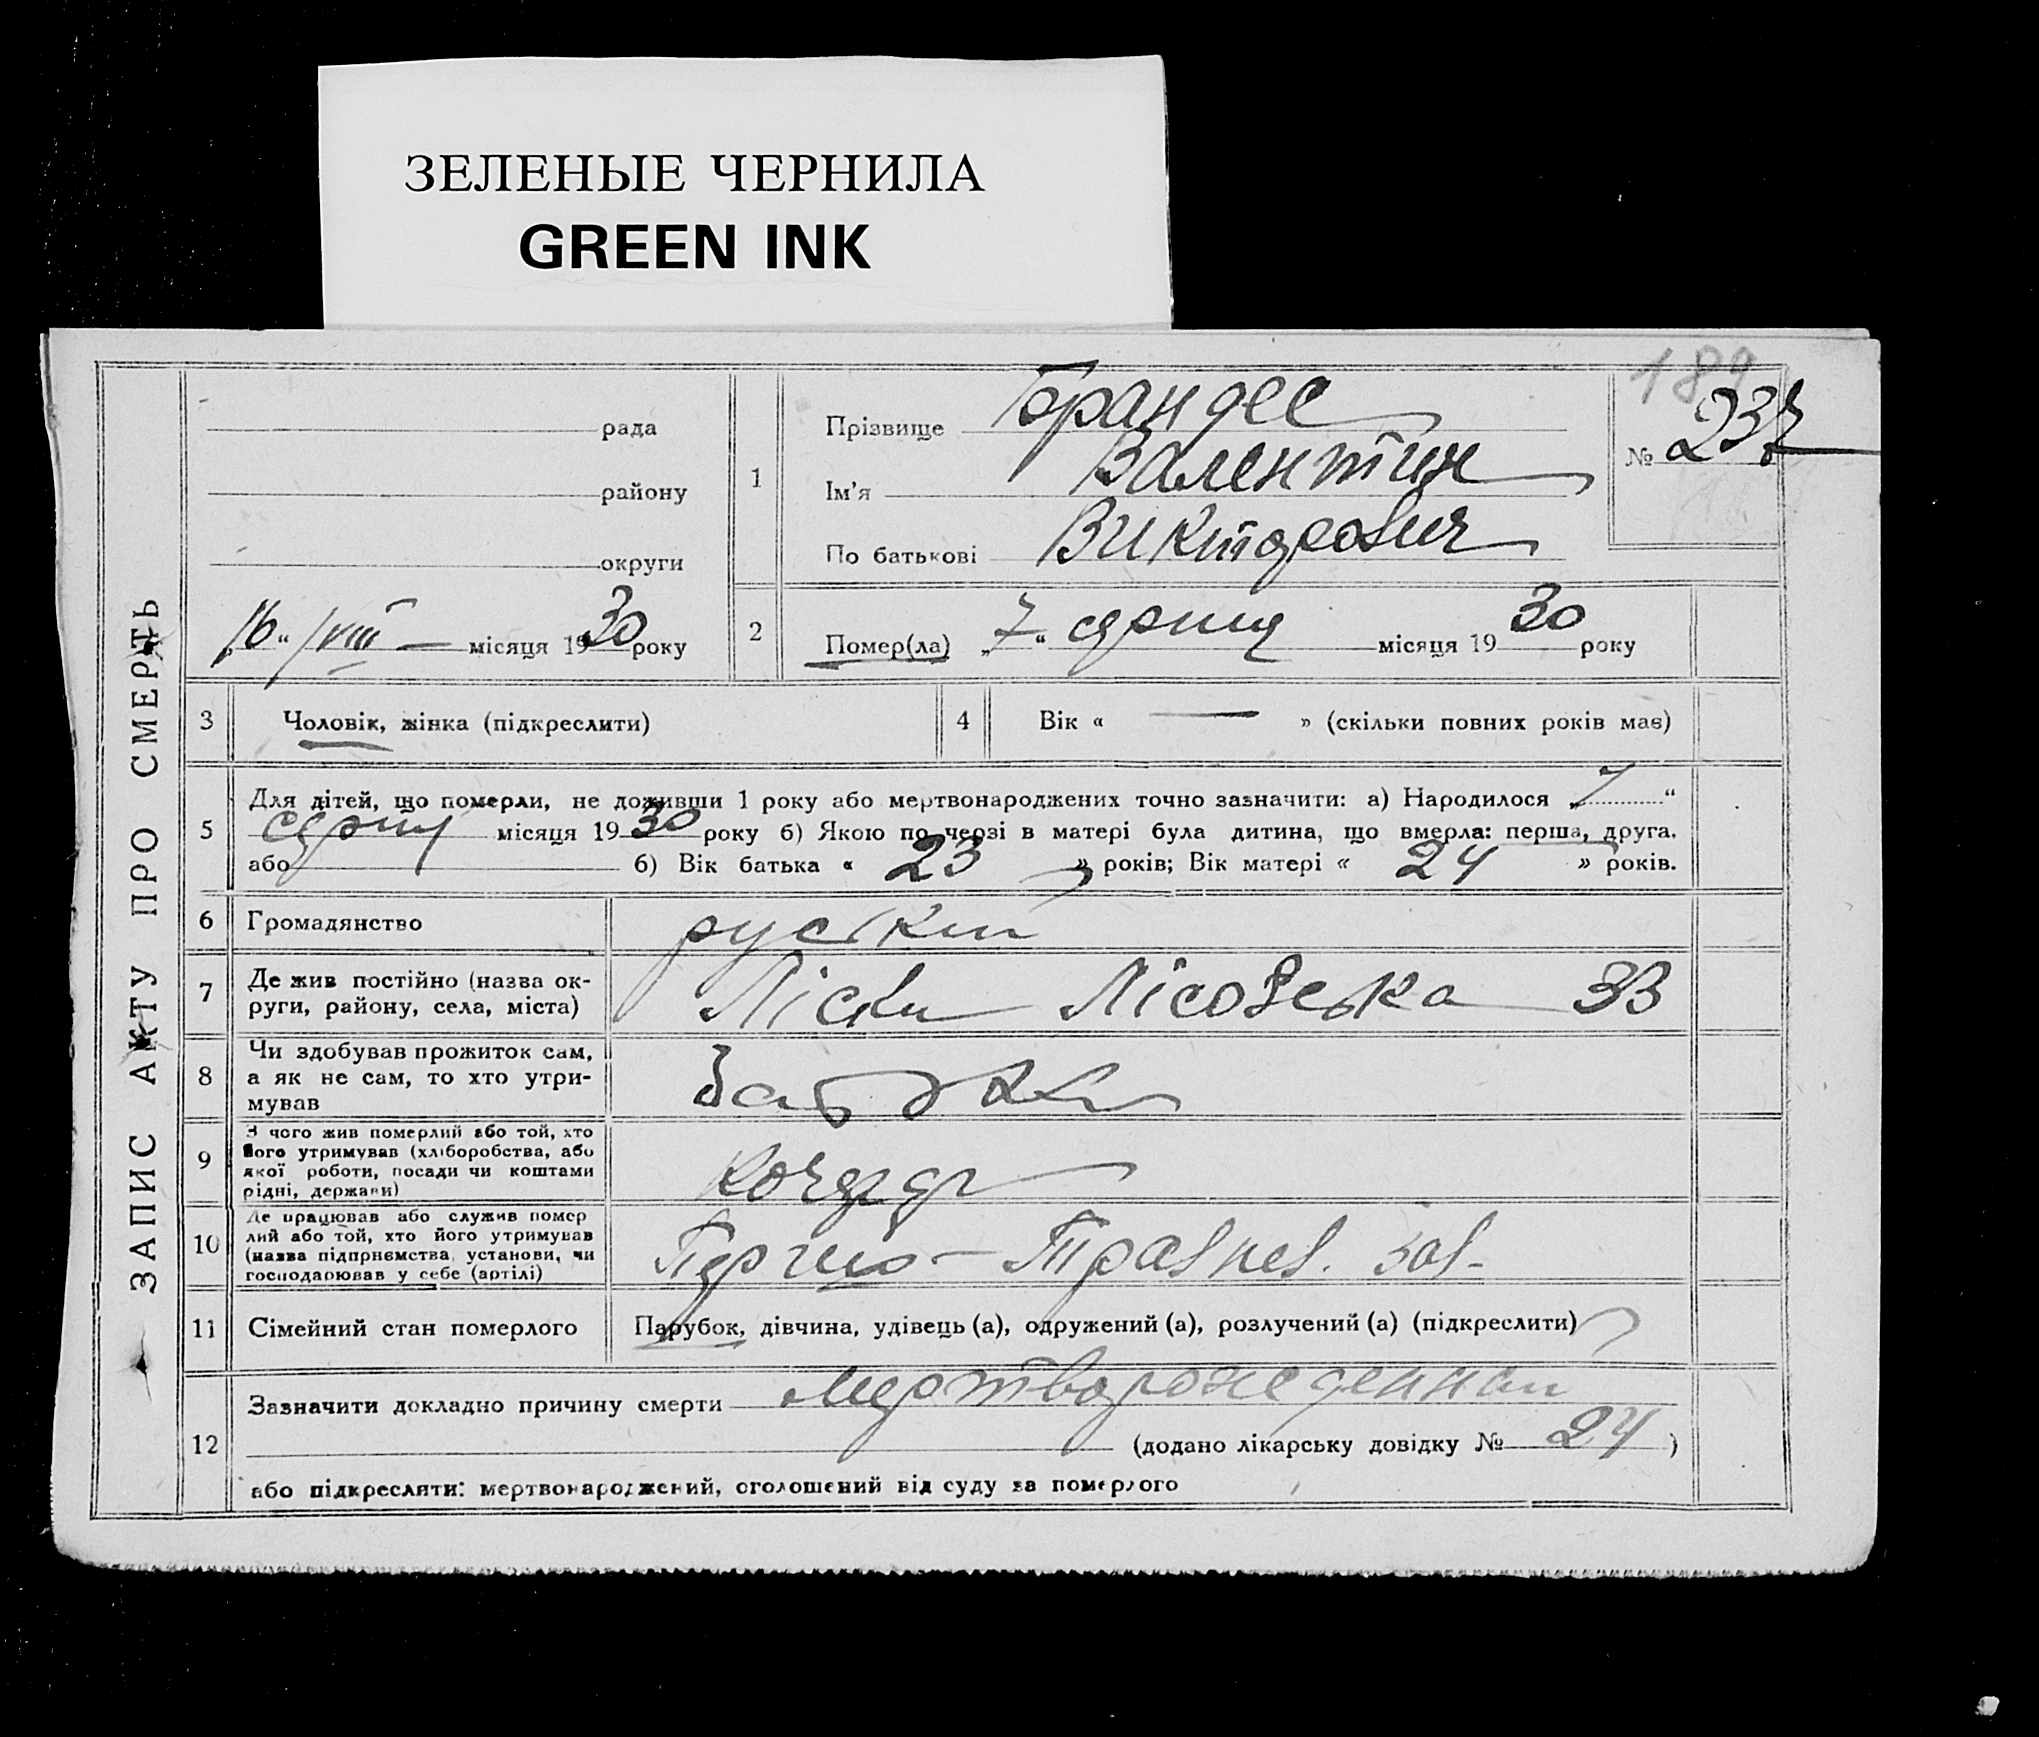 ЗЕЛЕНЫЕ ЧЕРНИЛА
GREEN INK
189
№ 237
рада
району
округи
„16“ VIII місяця 1930 року
1
Прізвище Брандес
Ім'я Валентин
По батькові Викторович
2
Помер(ла) „7“ серпня місяця 1930 року
ЗАПИС АКТУ ПРО СМЕРТЬ
3 Чоловік, жінка (підкреслити)
4 Вік « — » (скільки повних років має)
5
Для дітей, що померли, не доживши 1 року або мертвонароджених точно зазначити: а) Народилося „7“
серпня місяця 1930 року б) Якою по черзі в матері була дитина, що вмерла: перша, друга,
або б) Вік батька « 23 » років; Вік матері « 24 » років.
6 Громадянство руский
7 Де жив постійно (назва ок-
руги, району, села, міста)
Ліски Лісовська 33
8 Чи здобував прожиток сам,
а як не сам, то хто утри-
мував
9 З чого жив померлий або той, хто
його утримував (хліборобства, або
якої роботи, посади чи коштами
рідні, держави)
10 Де працював або служив помер
лий або той, хто його утримував
(назва підприємства, установи, чи
господарював у себе (артілі)
зав.
11 Сімейний стан померлого
Парубок, дівчина, удівець (а), одружений (а), розлучений (а) (підкреслити)
12
Зазначити докладно причину смерти мертворожденный
(додано лікарську довідку № 24 )
або підкреслити: мертвонароджений, оголошений від суду за померлого